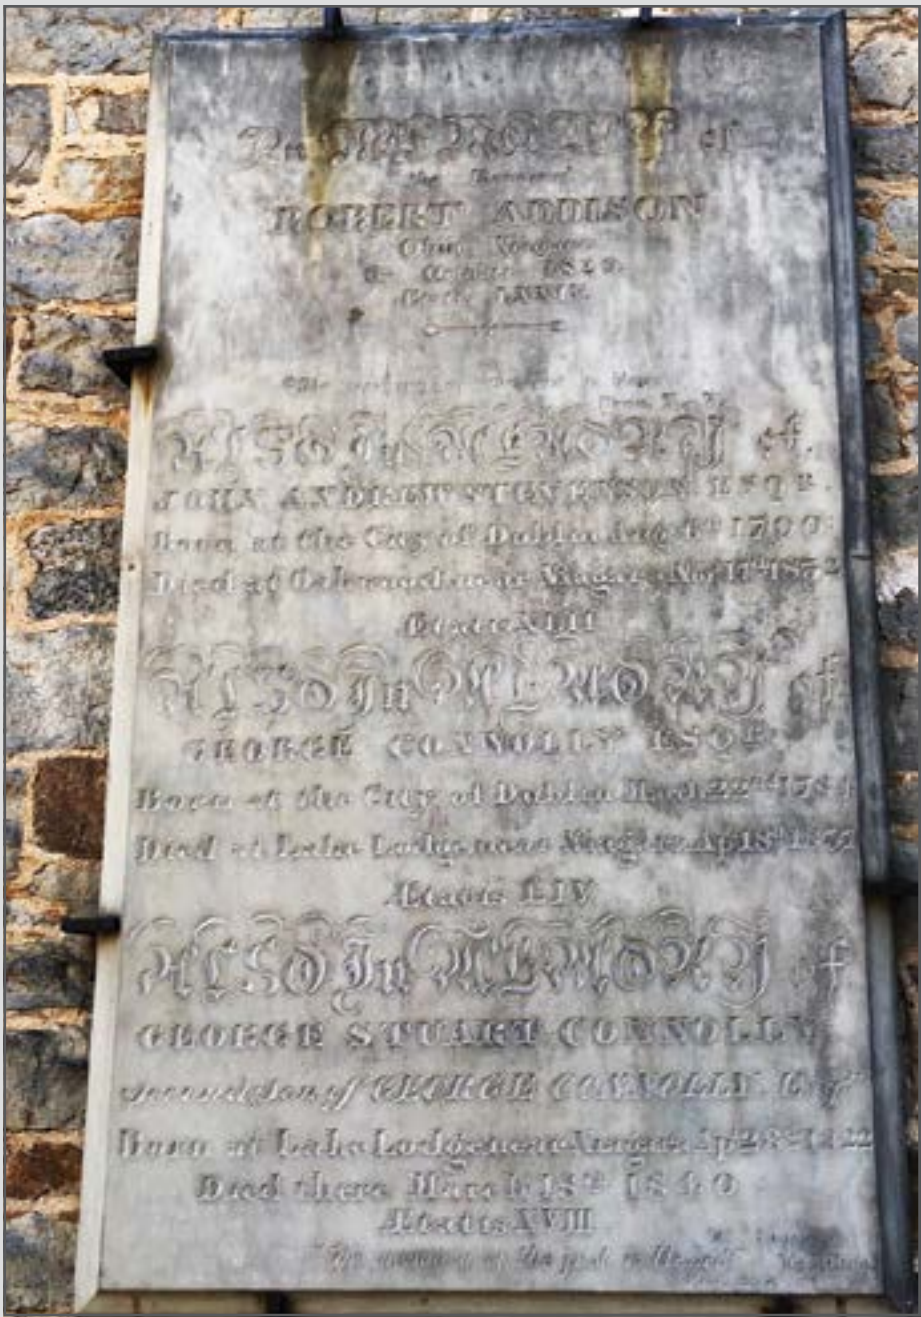 In MEMORY of
the Reverend
ROBERT ADDISON
Obiit Niagara
October 1829
ALSO In MEMORY of
JOHN ANDREW STEVENSON ESQR.
Born at the City of Dublin Aug 6th 1790
Died at near Niagara Nov 17th 1832
Ætatis XLII
ALSO In MEMORY of
GEORGE CONNOLLY ESQR
Born at the City of Dublin 22nd
Died at Lake Lodge near Niagara Ap 18th
Ætatis LIV
ALSO In MEMORY of
GEORGE STUART CONNOLLY
Second Son of GEORGE CONNOLLY Esqr
Born at Lake Lodge near Niagara Apl 28th 1822
Died there March 18th 1840
Ætatis XVIII
"The memory of the just is blessed"